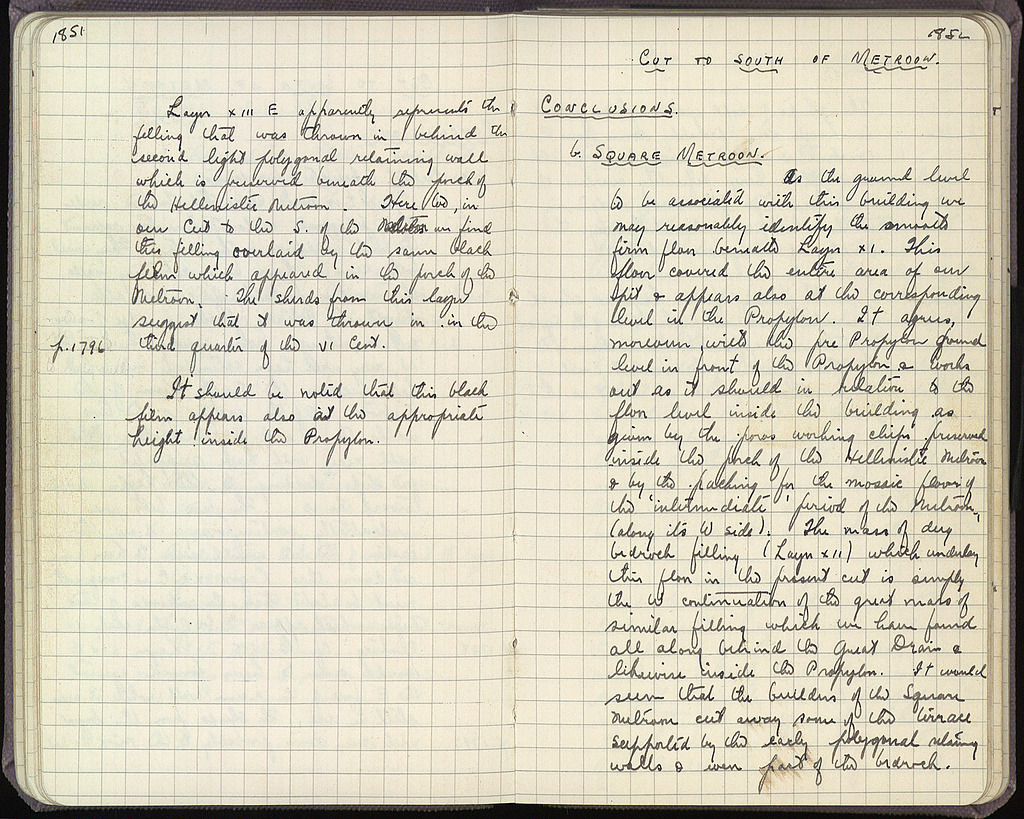 1851
Layer XIII E apparently represents the
filling that was thrown in behind the
second light polygonal retaining wall
which is preserved beneath the porch of
the Hellenistic Metroon. Here too, in
our Cut to the S. of the we find
this filling overlaid by the same black
film which appeared in the porch of the
Metroon. The sherds from this layer
suggest that it was thrown in in the
p.1796 third quarter of the VI Cent.
It should be noted that this black
film appears also at the appropriate
height inside the Propylon.
1852
CUT TO SOUTH OF METROON.
CONCLUSIONS.
6. SQUARE METROON.
As the ground level
to be associated with this building we
may reasonably identify the smooth
firm floor beneath Layer XI. This
floor covered the entire area of our
pit & appears also at the corresponding
level in the Propylon. It agrees,
moreover, with the pre Propylon ground
level in front of the Propylon & works
out as it should in relation to the
floor level inside the building as
given by the poros working chips preserved
inside the porch of the Hellenistic Metroon
& by the packing for the mosaic floor of
the 'intermediate' period of the Metroon,
(along its W side). The mass of dug
bedrock filling (Layer XII) which underlay
this floor in the present cut is simply
the W continuation of the great mass of
similar filling which we have found
all along behind the Great Drain &
likewise inside the Propylon. It would
seem that the builders of the Square
Metroon cut away some of the terrace
supported by the early polygonal retaining
walls & even part of the bedrock.